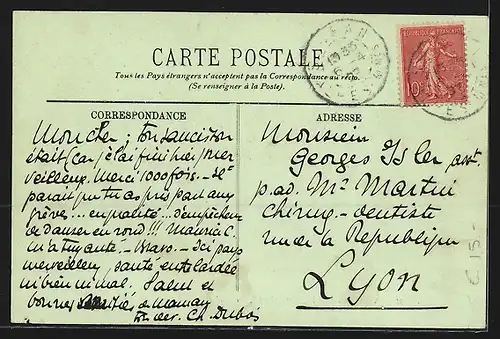 CARTE POSTALE
Tous les Pays étrangers n'acceptent pas la Correspondance au recto.
(Se renseigner à la Poste).
REPUBLIQUE FRANÇAISE
10c
CORRESPONDANCE
Mon cher; ton saucisson
était (car je l'ai fini hier) mer
veilleux. Merci 1000 fois. — Il
paraît que tu as pris part aux
grèves... en qualité... d'empêcheur
de danser en rond!!! Maurice C.
m'a tuyauté. — Bravo. — Ici pays
merveilleux, santé entrelardée
ni bien ni mal. Salut et
bonnes de Maman
Ch. Dubos
ADRESSE
Monsieur
Georges Isler asst.
p. ad. Mr Martini
chirurg-dentiste
rue de la République
Lyon
E 15-